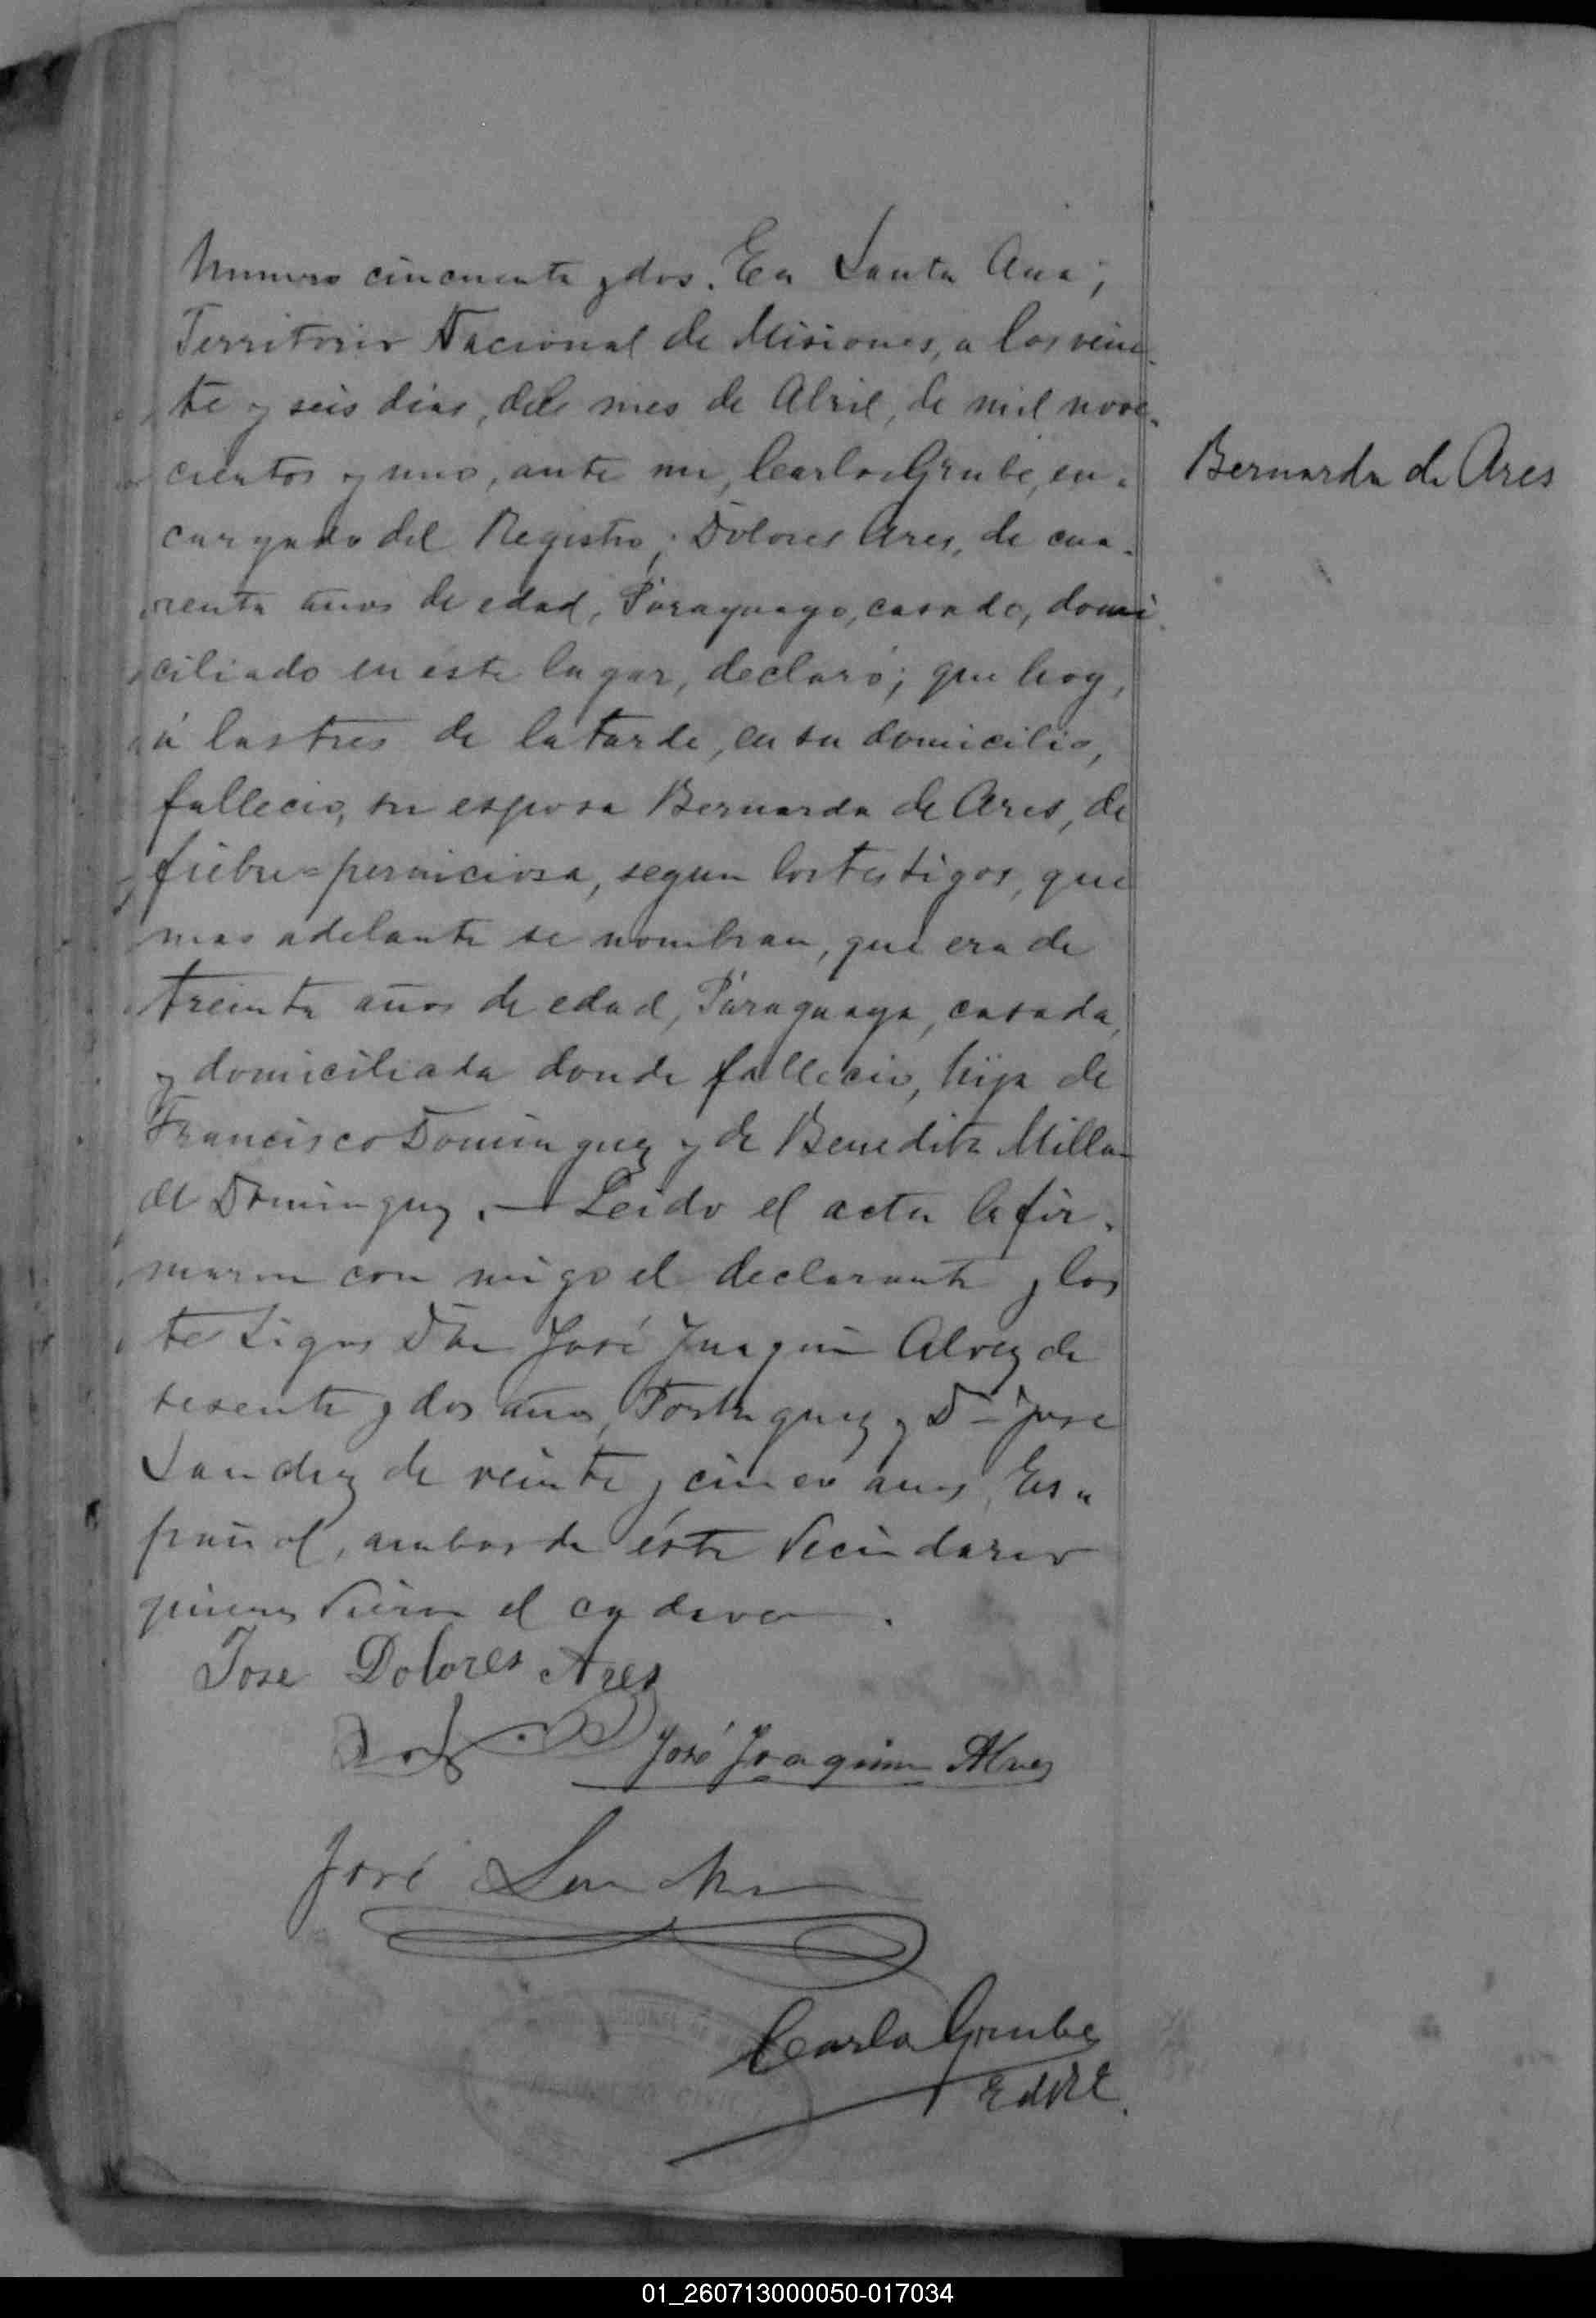 Numero cincuenta y dos. En Santa Ana;
Territorio Nacional de Misiones, a los vein
te y seis dias, del mes de Abril, de mil nove-
cientos y uno, ante mi, Carlos Grube, en-
cargado del Registro; Dolores Ares, de cua-
renta años de edad, Paraguayo, casado, domi
ciliado en este lugar, declaró; que hoy,
á las tres de la tarde, en su domicilio,
fallecio, su esposa Bernarda de Ares, de
fiebre=perniciosa, segun los testigos, que
mas adelante se nombran, que era de
treinta años de edad, Paraguaya, casada,
y domiciliada donde fallecio, hija de
Francisco Dominguez y de Benedita Millan
de Dominguez. — Leido el acta la fir-
maron con migo el declarante y los
testigos Don José Juaquin Alvez de
sesenta y dos años, Portuguez y Dn Jose
Sandez de veinte y cinco anos, Es-
pañol, ambos de éste Vecindario
quienes Vieron el cadaver.
Bernarda de Ares
Jose Dolores Ares
José Joaquim Alves
José
Carlos Grube
E del R C.
01_260713000050-017034